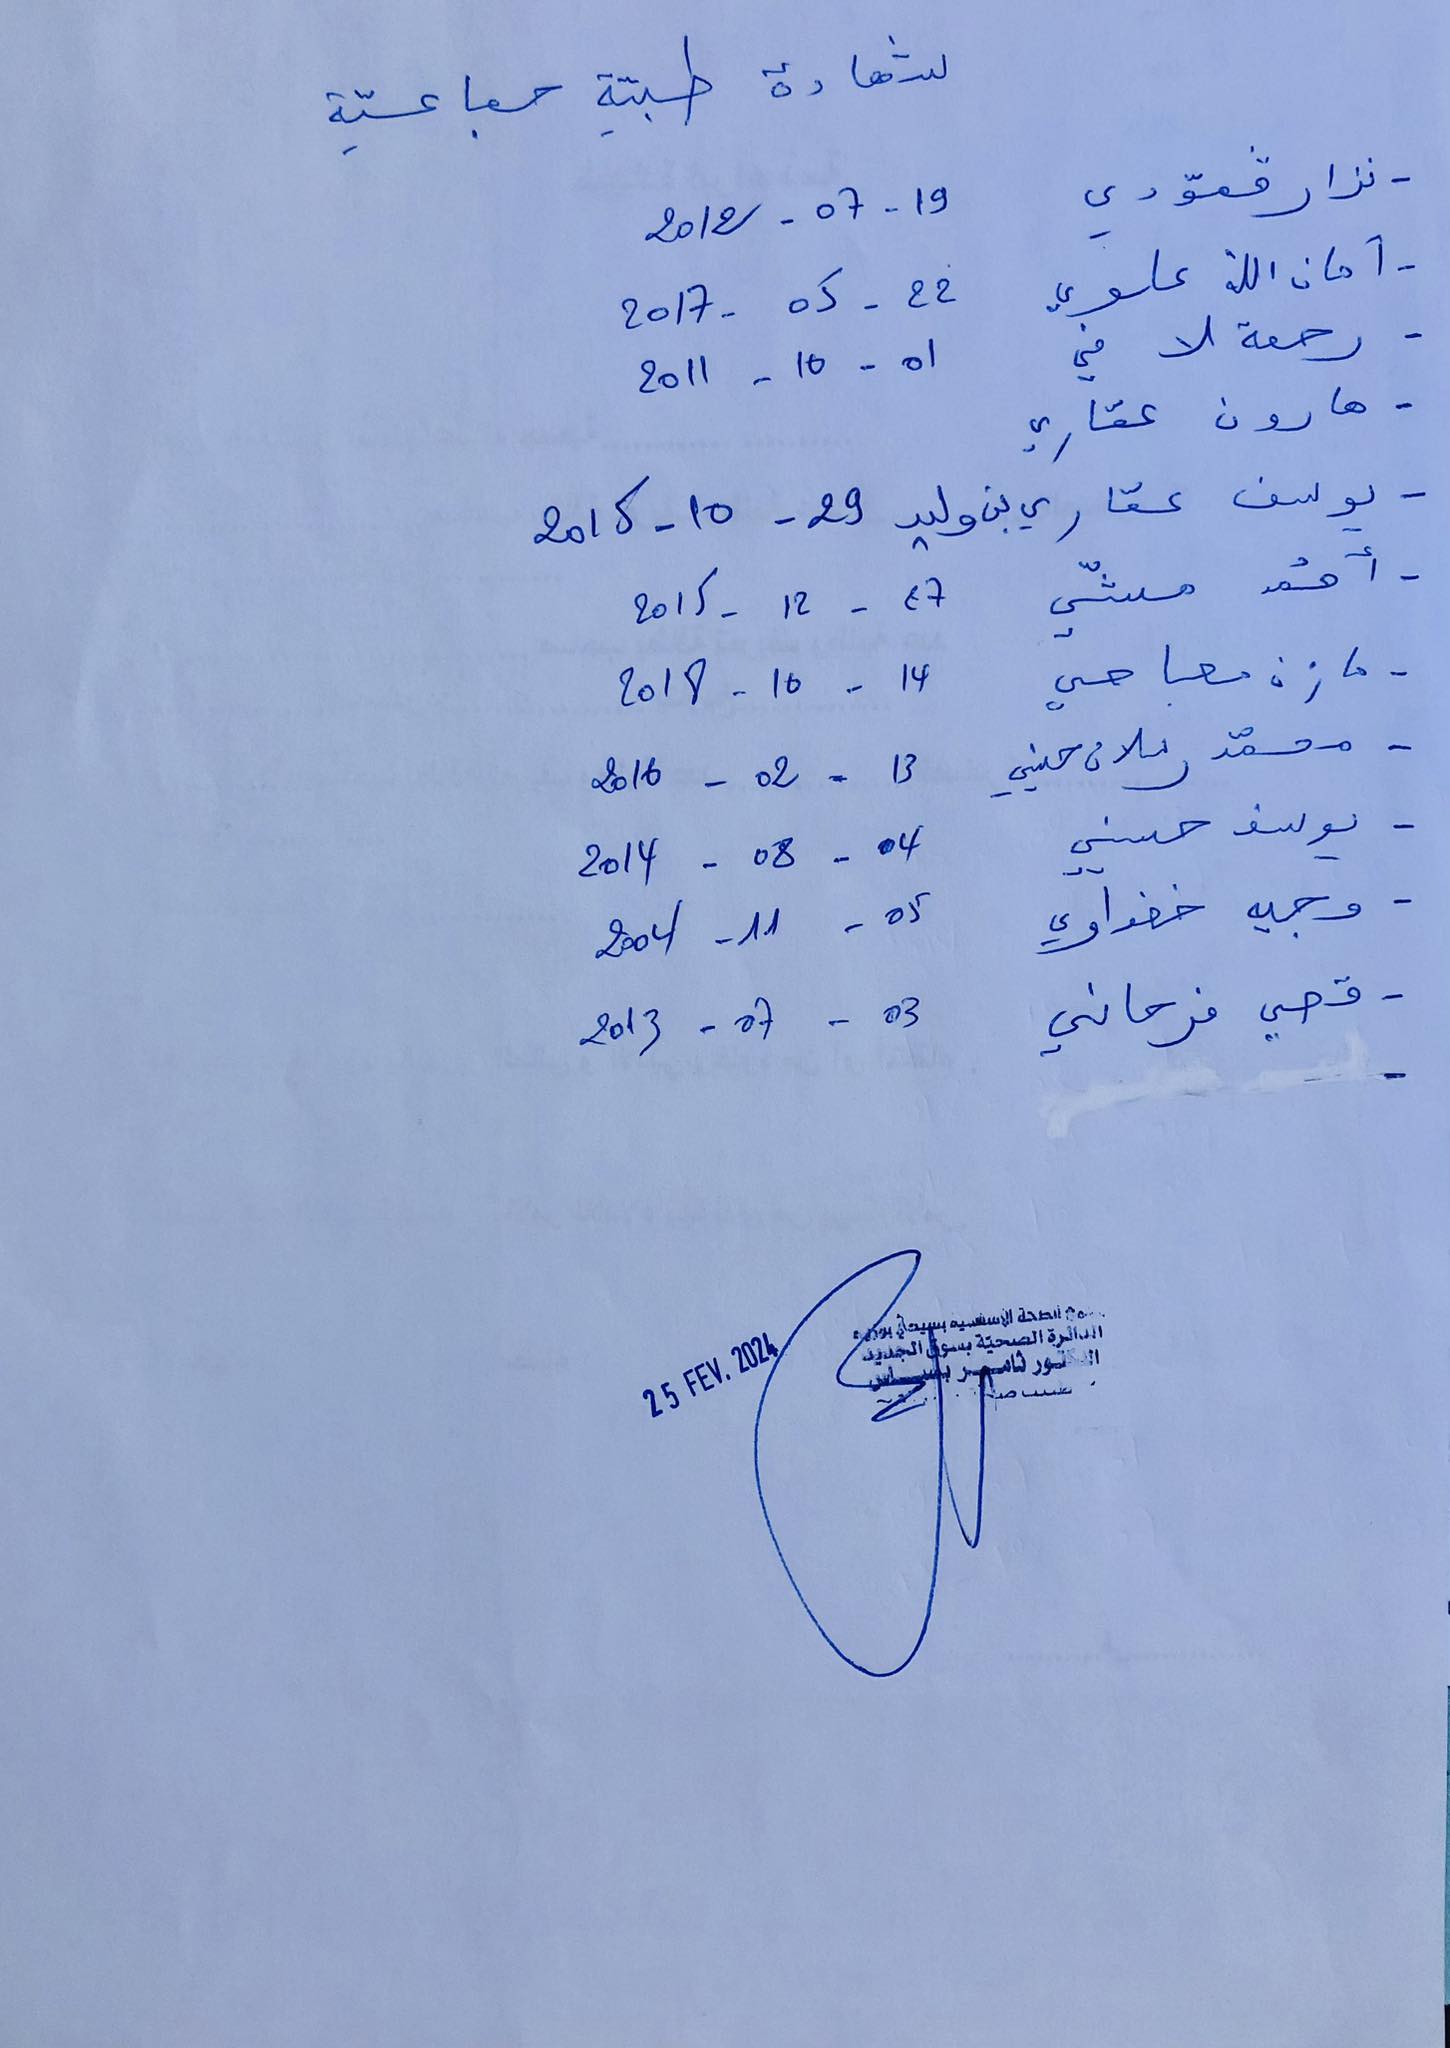 شهادة طبيّة جماعيّة
- نزار قمّودي 19 - 07 - 2012
- آمان الله علوي 22 - 05 - 2017
- رحمة لافي 01 - 10 - 2011
- هارون عمّاري
- يوسف عمّاري بن وليد 29 - 10 - 2015
- أحمد مثنّي 27 - 12 - 2015
- مازن مصباحي 14 - 10 - 2018
- محمّد حسيني 13 - 02 - 2016
- يوسف حسيني 04 - 08 - 2014
- وجيه خضراوي 05 - 11 - 2004
- قصي فرحاني 03 - 07 - 2013
-
الصحة الأساسية بسيدي بوزيد
الدائرة الصحيّة بسوق الجديد
الدكتور ثامر
25 FEV. 2024